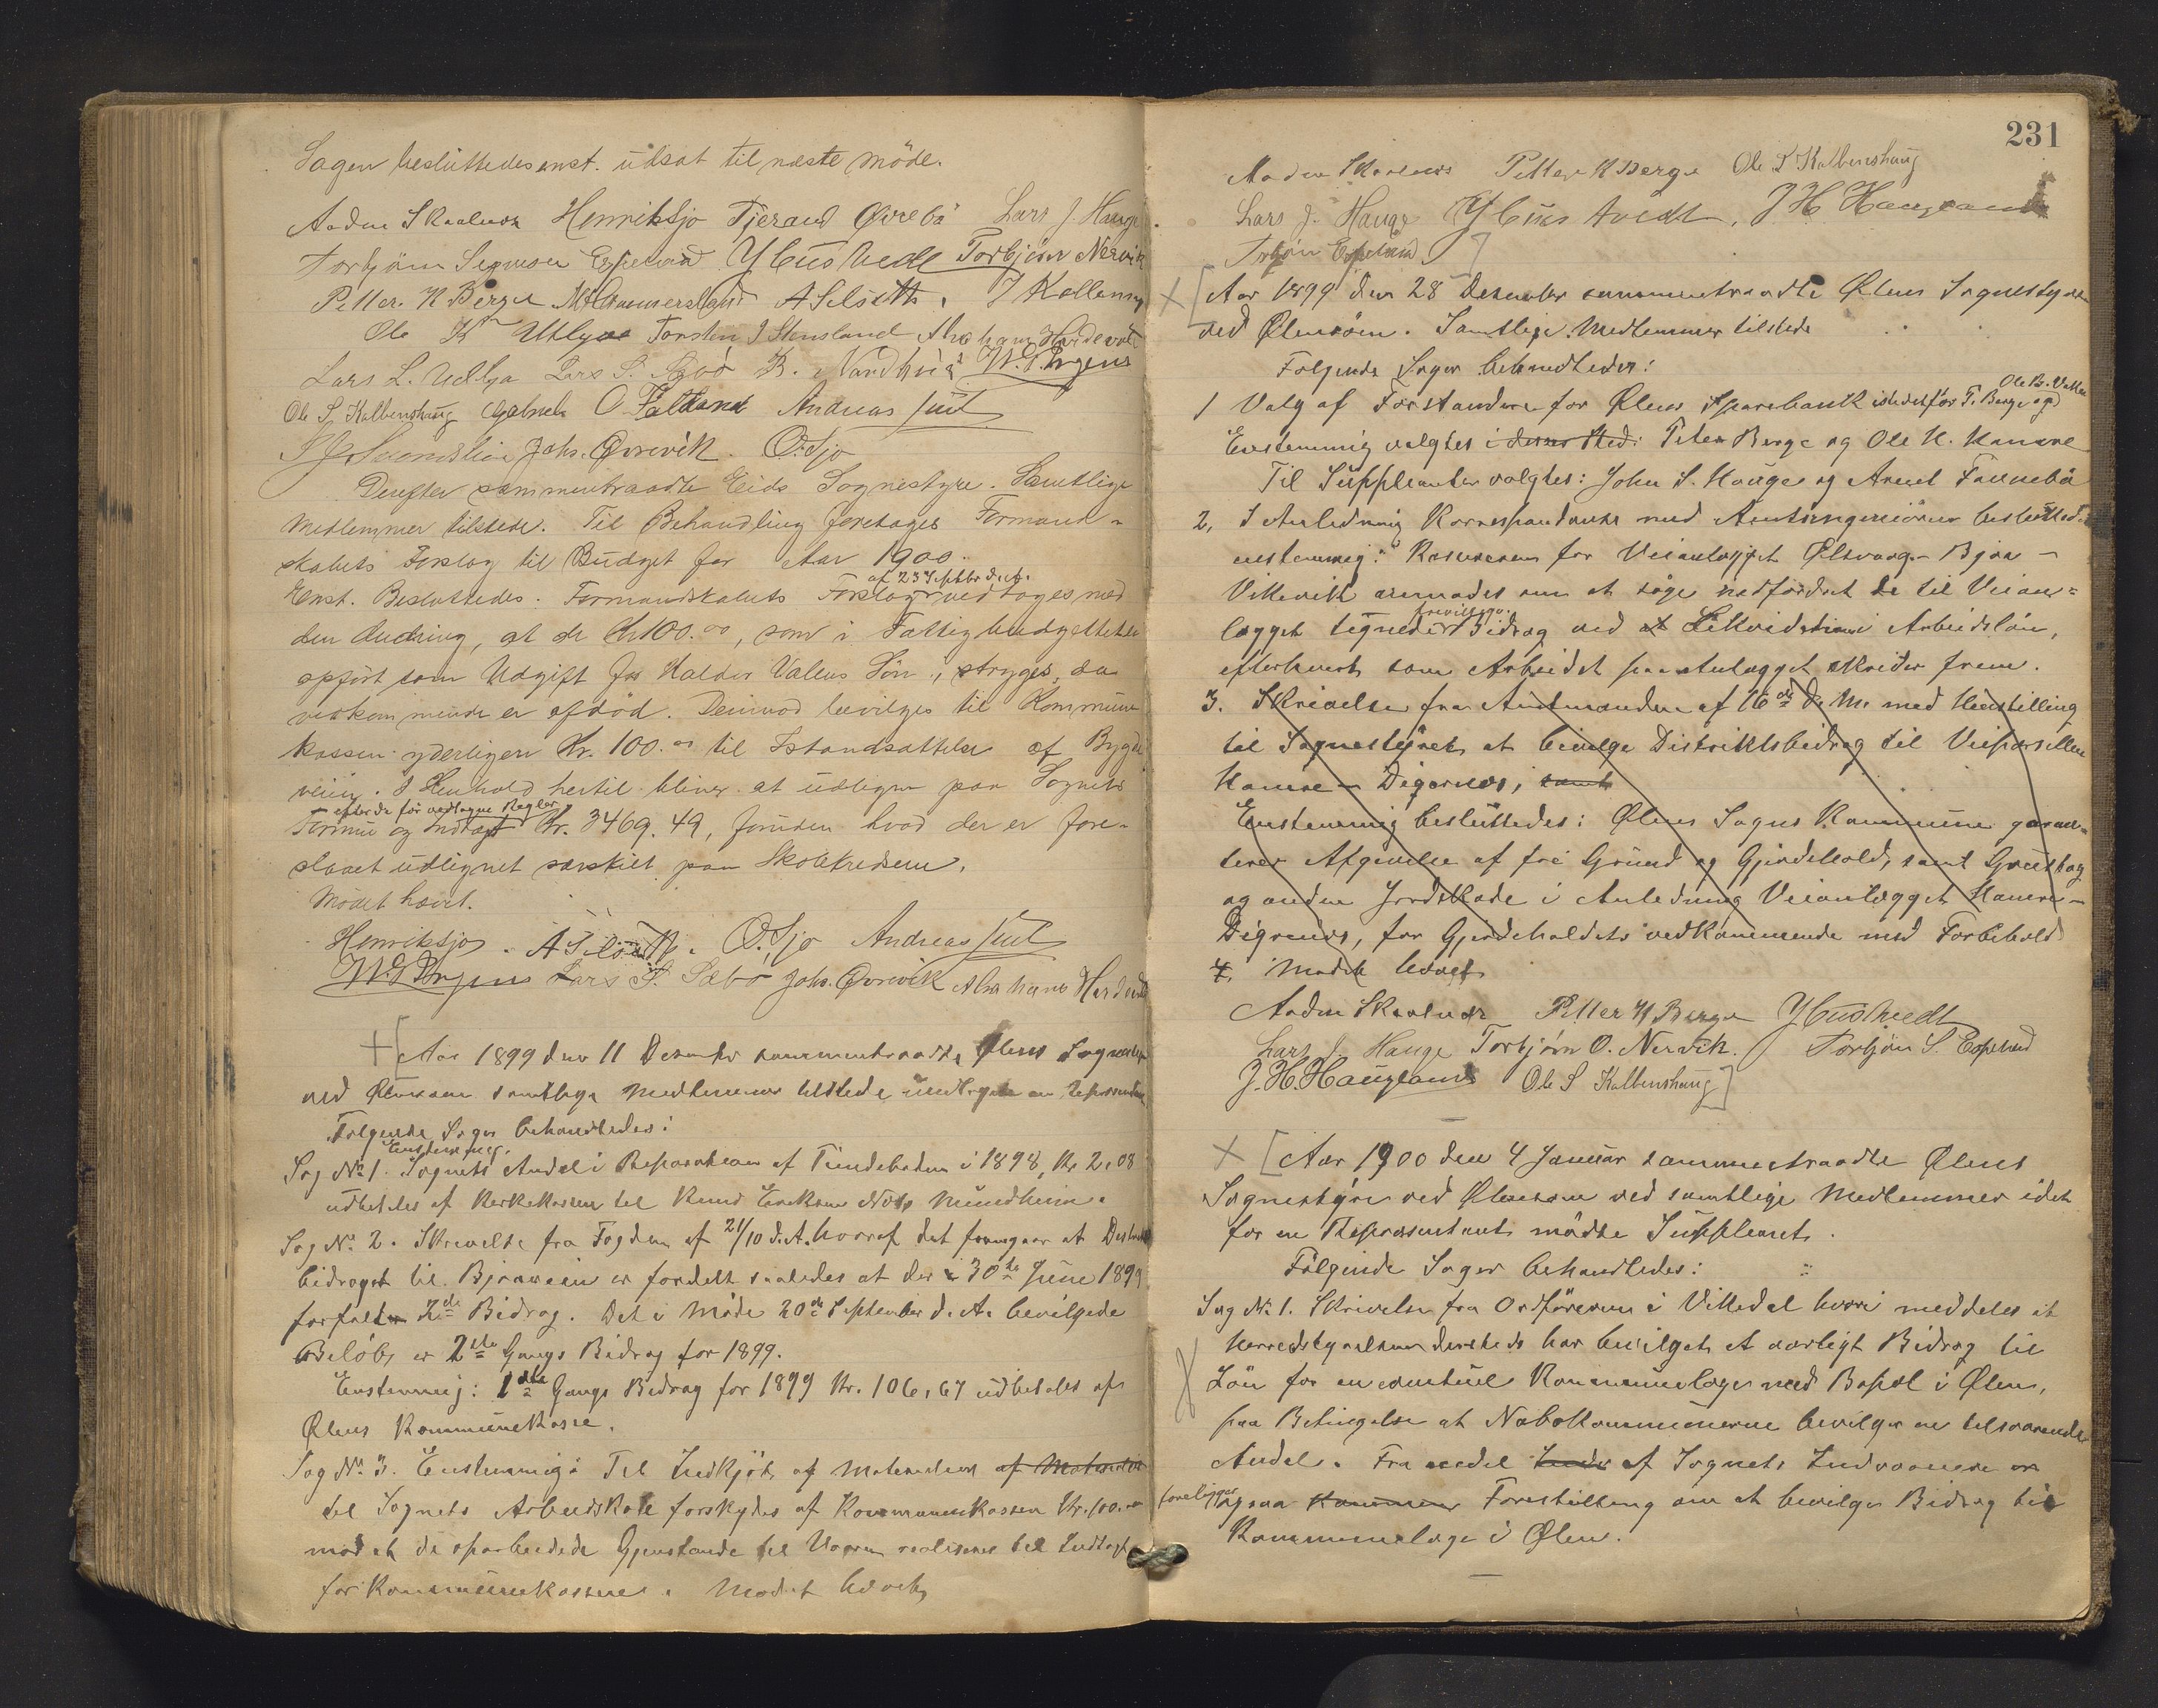 Sagen besluttedes enst. udsat til næste Möde.
Aadne Skaalnes Henrik Sjo Tjerand Øvrebö Lars J. Hauge
Torbjörn Espeland Y Gustvedt Torbjörn Nervik
Petter. H Berge A Selseth. J
Ole K Utbjoe Torsten J Stensland Abraham
Lars L. Udbjo Lars S. Sæbö
Ole S. Kalbenshaug Gabriel O Fatland Andreas
Johs. Øvrevik. O. Sjo
Derefter sammentraadte Eids Sognestyre. Samtlige
Medlemmer tilstede. Til Behandling foretoges Formand-
skabets Forslag til Budget for Aar 1900.
af 23 Septbr d. A.
Enst. Besluttedes: Formandskabets Forslag vedtages med
den Ændring, at de Kr 100.00, som i Fattigbudgettet er
opfört som Udgift for Halder Valens Sön, stryges, da
vedkommende er afdöd. Derimod bevilges til Kommune
kassen yderligere Kr. 100.00 til Istandsættelse af Bygde
veie. I Henhold hertil bliver at udligne paa Sognets
efter de för vedtagne Regler
Formue og Indtægt Kr. 3469.49, foruden hvad der er fore-
slaaet udlignet særskilt paa Skolekredsene.
Mödet hævet.
Henrik Sjo. A Selseth. O. Sjo Andreas
Lars S. Sæbö Johs. Øvrevik Abraham
+ [Aar 1899 den 11 December sammentraadte Ølens Sognestyre
ved Ølensøen samtlige Medlemmer tilstede undtagen en Repræsentant
Følgende Sager behandledes:
Enstemmig.
Sag No 1. Sognets Andel i Reparation af Tiendeboden i 1898, Kr 2.08
udbetales af Kirkekassen til Knud Eriksen Mundheim.
Sag No. 2. Skrivelse fra Fogden af 21/10 d. A. hvoraf det fremgaar at Distrikts
bidraget til Bjoaveien er fordelt saaledes at der 30te Juni 1899
forfalder 2de Bidrag. Det i Möde 20de September d. A. bevilgede
Belöb, er 2den Gangs Bidrag for 1899.
Enstemmig: 1ste Gangs Bidrag for 1899 Kr. 106,67 udbetales af
Ølens Kommunekasse.
Sag No 3. Enstemmig: Til Indkjöb af Materialier af Materialier
til Sognets Arbeidskole forskydes af Kommunekassen Kr. 100.00
mod at de oparbeidede Gjenstande til Vaaren realiseres til Indtægt
for Kommunekassen. Mödet hævet.
231
Aadne Skaalnes Petter H Berge Ole S Kalbenshaug
Lars J. Hauge Y Gustvedt. J H Haugland
Torbjön Espeland]
+ [Aar 1899 den 28 Desember sammentraadte Ølens Sognestyre
ved Ølensöen. Samtlige Medlemmer tilstede
Følgende Sager behandledes:
Ole B. Vatne
1 Valg af Forstandere for Ølens Sparebank istedetfor T. Berge og
Enstemmig valgtes i deres Sted: Peter Berge og Ole H. Hamre
Til Suppleanter valgtes: John S. Hauge og Arent Fannebö
2, I Anledning Korrespondanse med Amtsingeniören besluttedes
enstemmig: Kassereren for Veianlægget Ølsvaag-Bjoa-
Vikevik anmodes om at söge nedfordret de til Veian=
frivillige
lægget tegnede Bidrag ved at Likvidation i Arbeidslön,
efterhvert som Arbeidet paa Anlægget skrider frem.
3. Skrivelse fra Amtmanden af 16de d. M. med Henstilling
til Sognestyret at bevilge Distriktsbidrag til Veiparsellen
Hamre - Digernes, samt
Enstemmig besluttedes: Ølens Sogns Kommune garan-
terer Afgivelse af fri Grund og Gjerdehold, samt Grustag
og anden Jordskade i Anledning Veianlægget Hamre-
Digernes, for Gjerdeholdets vedkommende med Forbehold
4, Mödet hævet
Aadne Skaalnes Petter H Berge Y Gustvedt
Lars J. Hauge Torbjörn O. Nervik. Torbjön S. Espeland
J. H. Haugland Ole S Kalbenshaug]
+ [Aar 1900 den 4 Januar sammentraadte Ølens
Sognestyre ved Ølensøen ved samtlige Medlemmer idet
for en Repræsentant mödte Suppleant.
Fölgende Sager behandledes:
Sag No. 1. Skrivelse fra Ordföreren i Vikedal hvori meddeles at
Herredstyrelsen dersteds har bevilget et aarligt Bidrag til
Lön for en eventuel Kommunelæge med Bopæl i Ølen,
paa Betingelse at Nabokommunerne bevilger en tilsvarende
Andel. Fra endel Indv af Sognets Indvaanere
foreligger ogsaa Forestilling om at bevilge Bidrag til
Kommunelæge i Ølen.